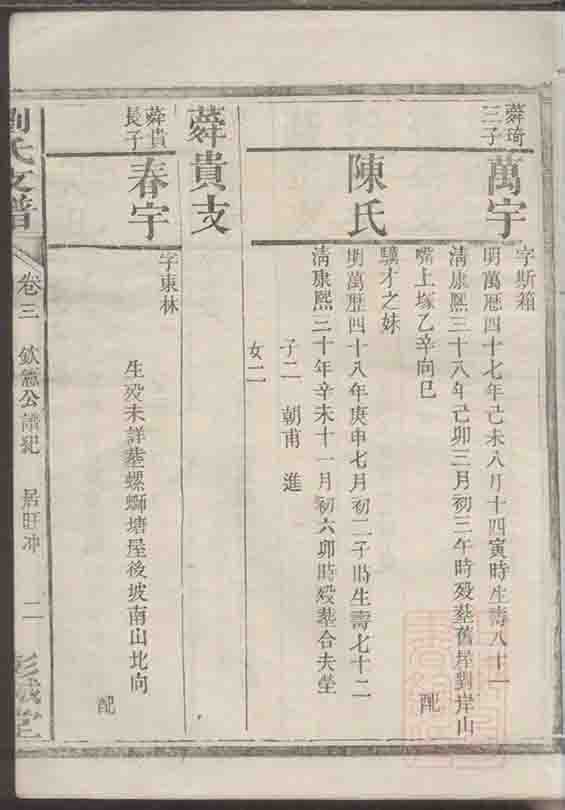 蕣琦
三子
萬宇
字斯箱
明萬歷四十七年己未八月十四寅時生壽八十一
清康熙三十八年己卯三月初三午時歿塟舊屋對岸山
嘴上塚乙辛向巳
配
陳氏
驥才之妹
明萬歷四十八年庚申七月初二子時生壽七十二
清康熙三十年辛未十一月初六卯時歿塟合夫塋
子二 朝甫 進
女二
蕣貴支
蕣貴
長子
春宇
字東林
生歿未詳塟螺螄塘屋後坡南山北向
配
劉氏支譜
卷三
公譜
居旺冲
二
彭城堂